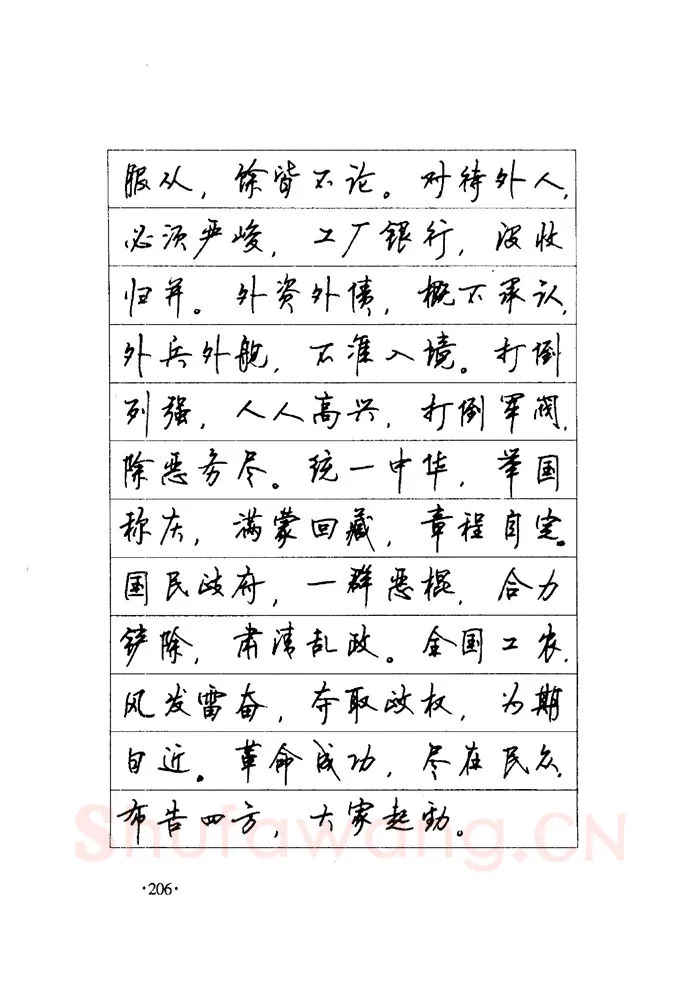 服从，馀皆不论。对待外人，
必须严峻，工厂银行，没收
归并。外资外债，概不承认，
外兵外舰，不准入境。打倒
列强，人人高兴，打倒军阀，
除恶务尽。统一中华，举国
称庆，满蒙回藏，章程自定。
国民政府，一群恶棍，合力
铲除，肃清乱政。全国工农，
风发雷奋，夺取政权，为期
日近。革命成功，尽在民众，
布告四方，大家起勐。
Shufawang.CN
·206·